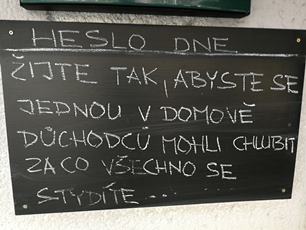 HESLO DNE
ŽIJTE TAK, ABYSTE SE
JEDNOU V DOMOVĚ
DŮCHODCŮ MOHLI CHLUBIT
ZA CO VŠECHNO SE
STYDÍTE...